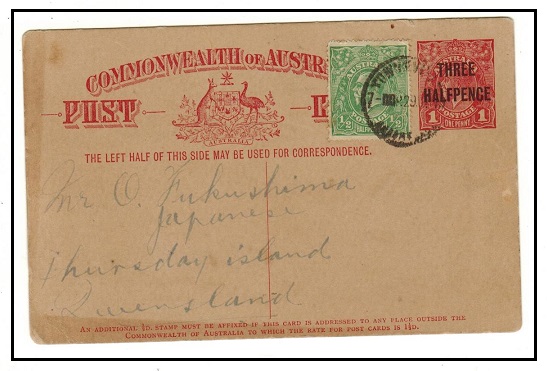 COMMONWEALTH OF AUSTR
POST
AUSTRALIA
½ POSTAGE ½
HALFPENNY
THREE
HALFPENCE
1 POSTAGE 1
ONE PENNY
THE LEFT HALF OF THIS SIDE MAY BE USED FOR CORRESPONDENCE.
Mr O. Fukushima
Japanese
Thursday island
Queensland
AN ADDITIONAL ½D. STAMP MUST BE AFFIXED IF THIS CARD IS ADDRESSED TO ANY PLACE OUTSIDE THE
COMMONWEALTH OF AUSTRALIA TO WHICH THE RATE FOR POST CARDS IS 1½D.